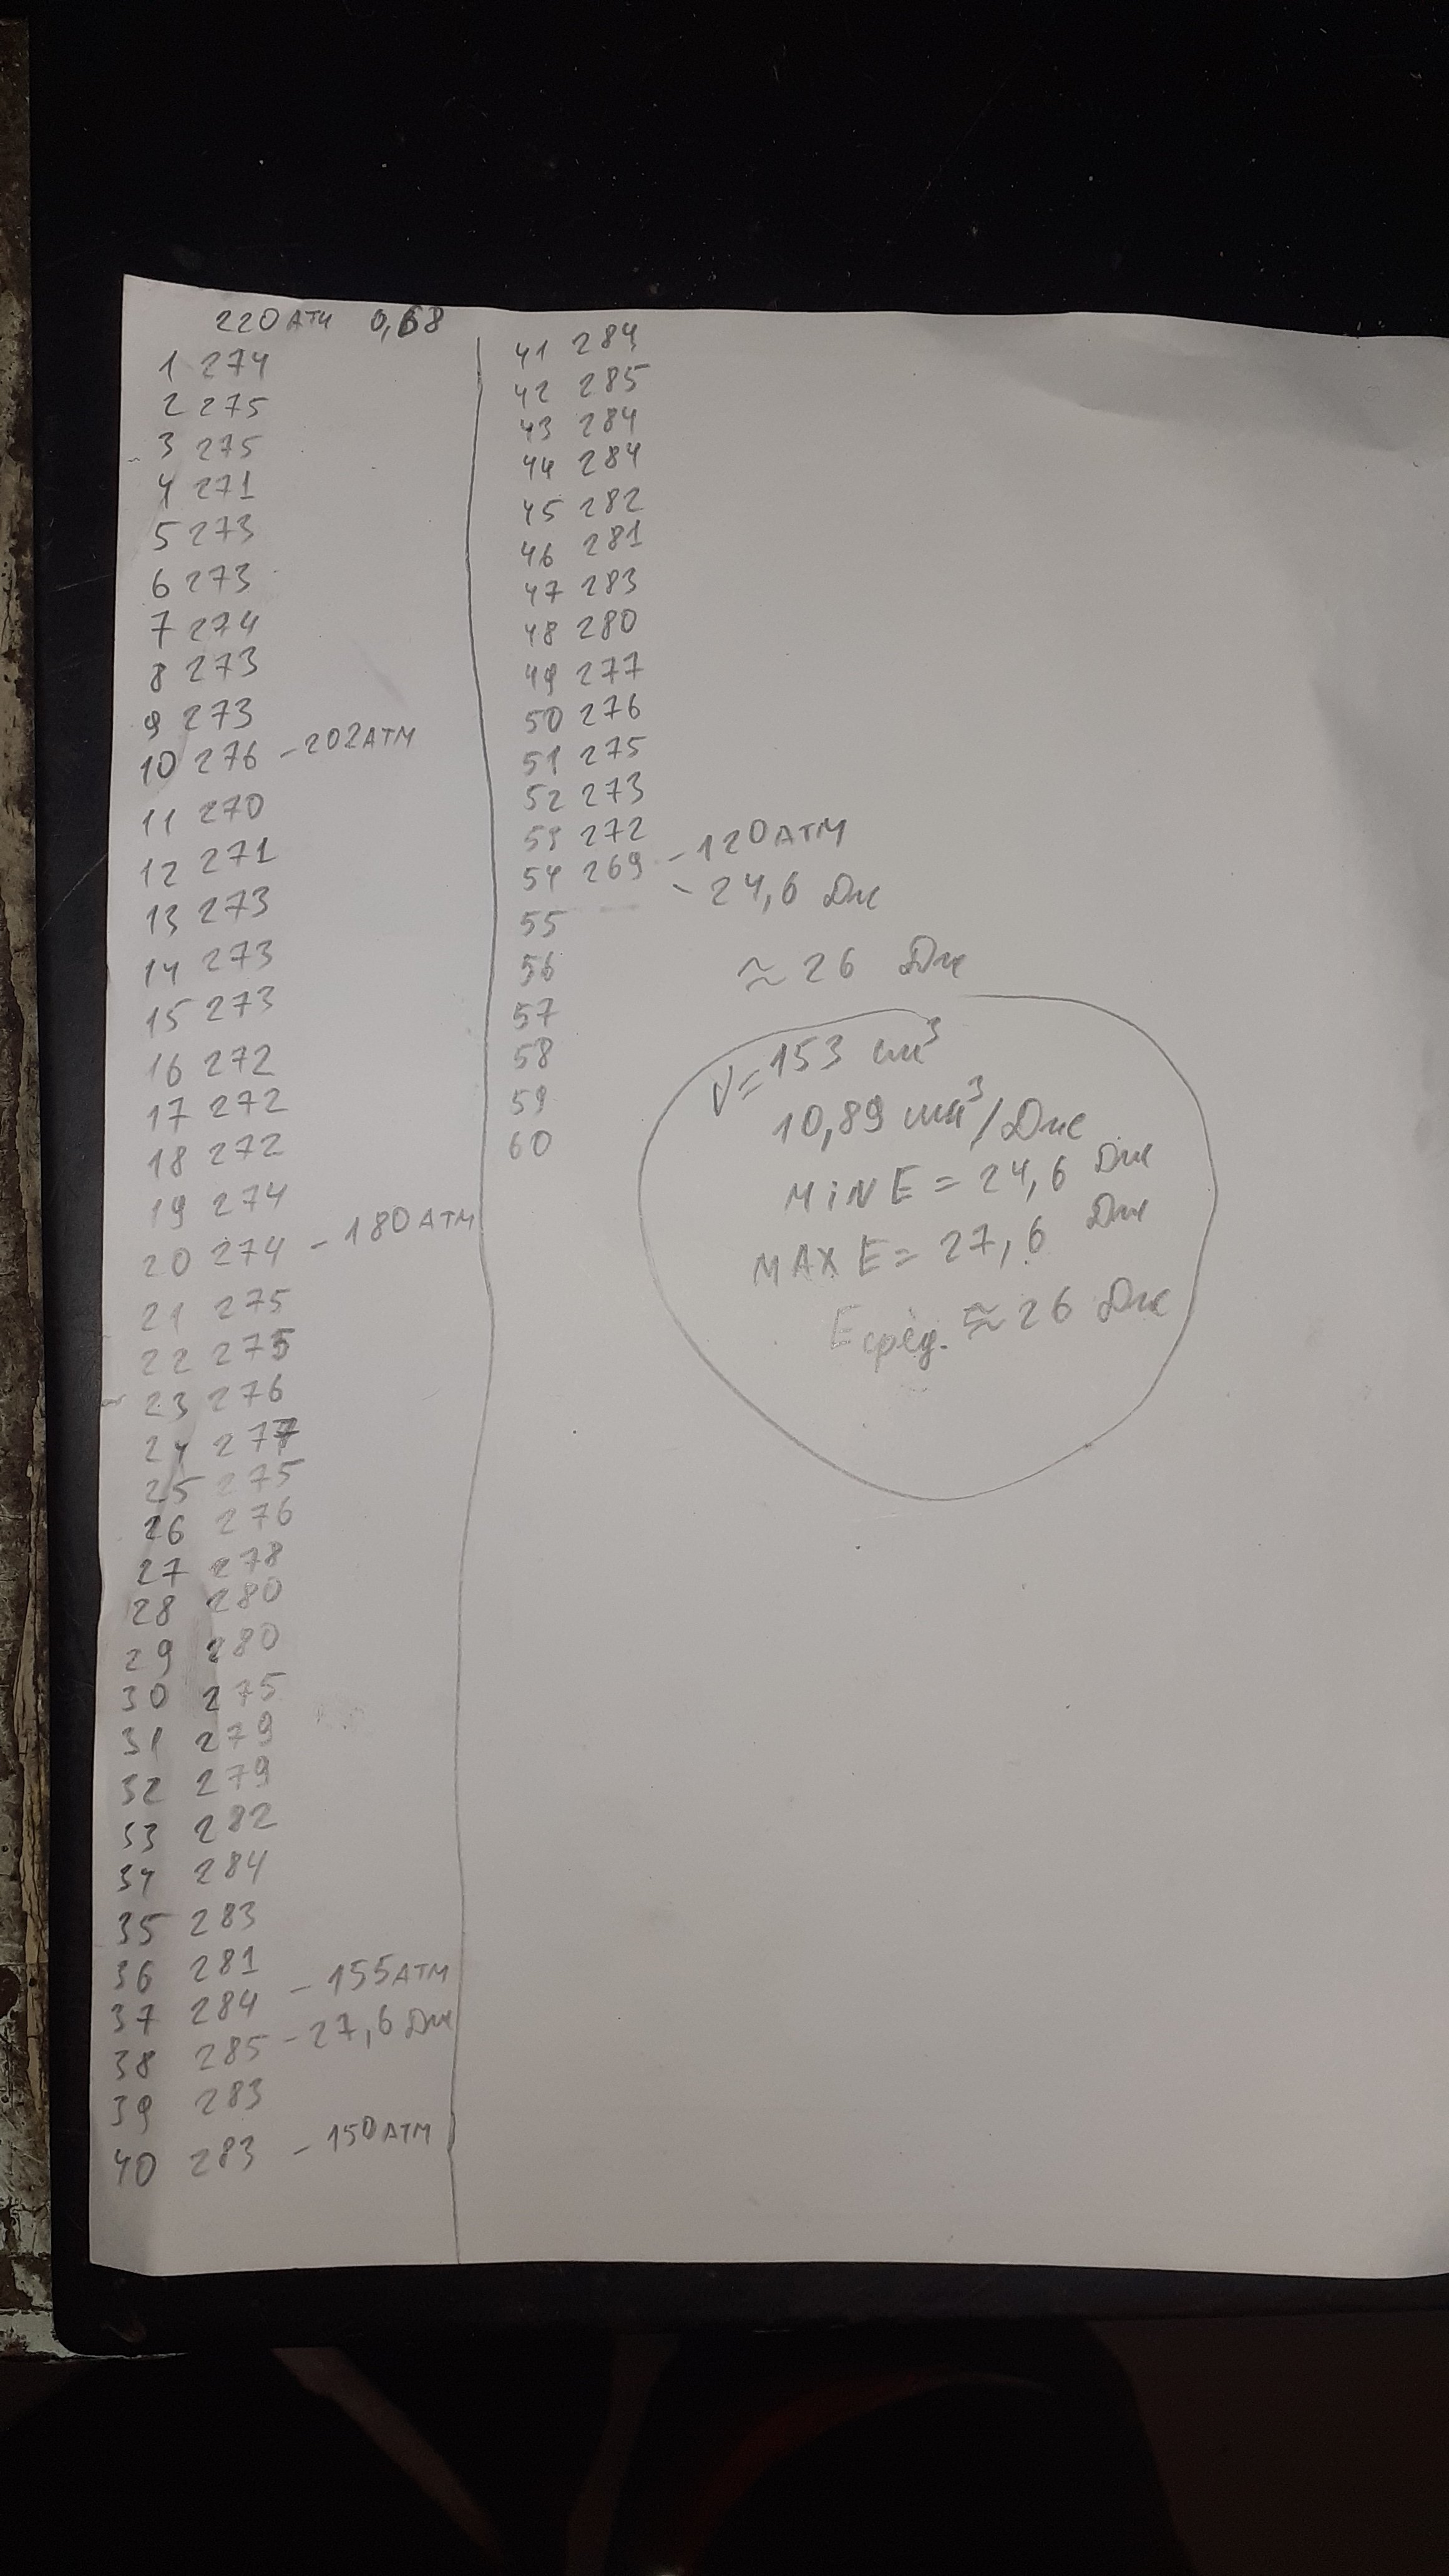 220 АТМ 0,68
1 274
2 275
3 275
4 271
5 273
6 273
7 274
8 273
9 273
10 276 - 202 АТМ
11 270
12 271
13 273
14 273
15 273
16 272
17 272
18 272
19 274
20 274 - 180 АТМ
21 275
22 275
23 276
24 277
25 275
26 276
27 278
28 280
29 280
30 275
31 279
32 279
33 282
34 284
35 283
36 281
37 284 - 155 АТМ
38 285 - 27,6 Дж
39 283
40 283 - 150 АТМ
41 284
42 285
43 284
44 284
45 282
46 281
47 283
48 280
49 277
50 276
51 275
52 273
53 272
54 269 - 120 АТМ
- 24,6 Дж
55
56
57
58
59
60
≈ 26 Дж
V = 153 см³
10,89 см³/Дж
MIN E = 24,6 Дж
MAX E = 27,6 Дж
E сред. ≈ 26 Дж